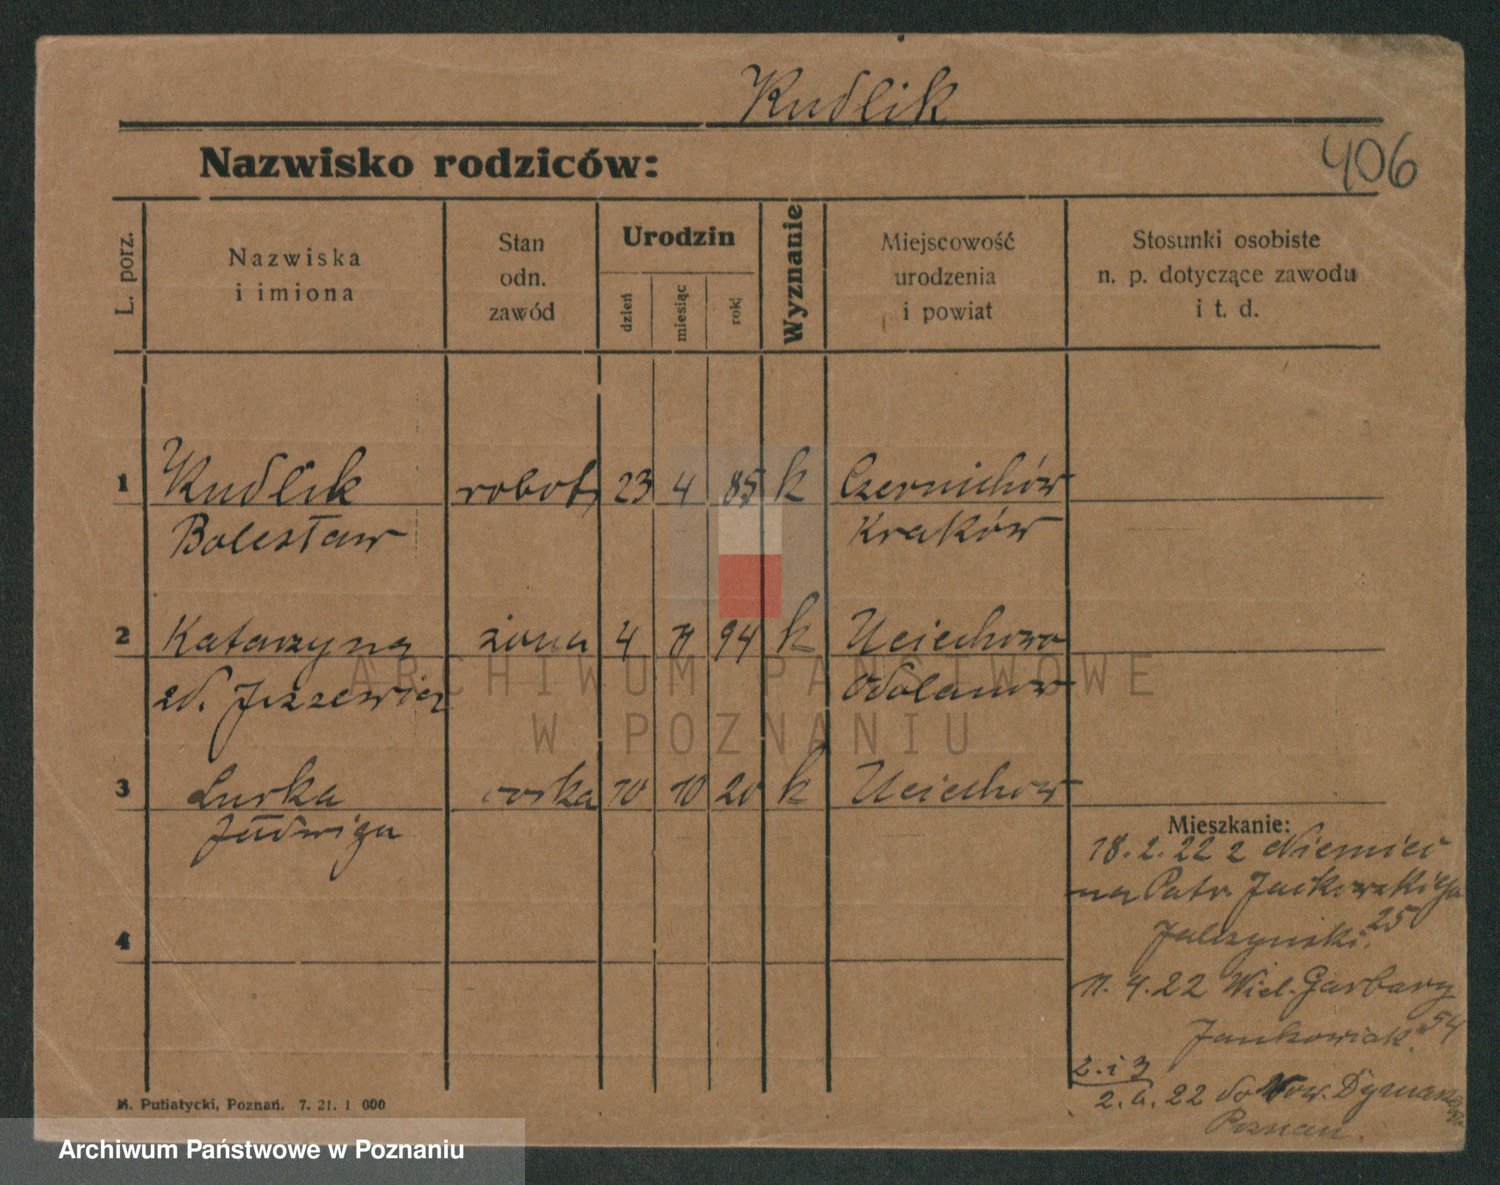 Kudlik
406
Nazwisko rodziców:
L. porz.
Nazwiska
i imiona
Stan
odn.
zawód
Urodzin
dzień
miesiąc
rok
Wyznanie
Miejscowość
urodzenia
i powiat
Stosunki osobiste
n. p. dotyczące zawodu
i t. d.
1 Kudlik robotn 23 4 85 k Czernichów
Bolesław Kraków
2 Katarzyna żona 4 11 94 k Uciechowo
zd. Odolanów
3 córka 10 10 20 k Uciechow
Jadwiga
4
Mieszkanie:
18.2.22 z Niemiec
na Patr. Jackowskiego
25
11.4.22 Wiel. Garbary
Jankowiak 54
2. i 3
2.6.22 do Pow.
Poznań.
M. Putiatycki, Poznań. 7. 21. 1 000
ARCHIWUM PAŃSTWOWE
W POZNANIU
Archiwum Państwowe w Poznaniu